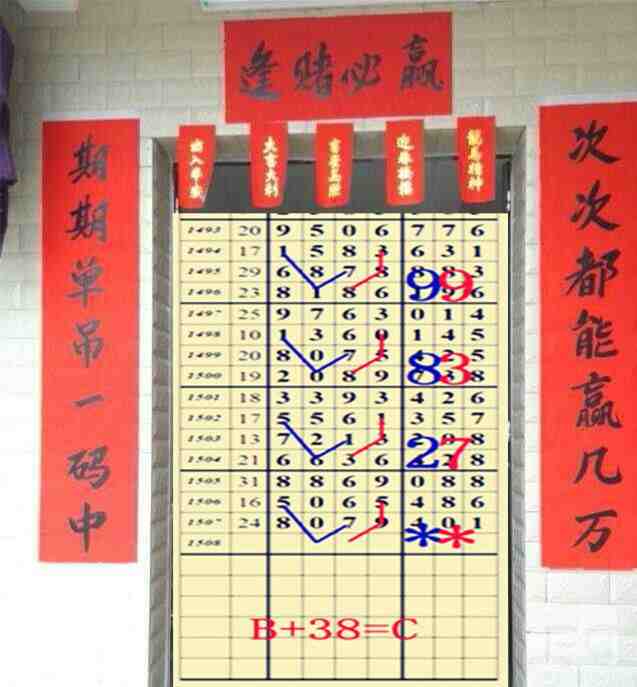 逢赌必赢
期期单吊一码中
次次都能赢几万
出入平安
大吉大利
吉星高照
迎春接福
龍馬精神
1493 20 9 5 0 6 7 7 6
1494 17 1 5 8 3 6 3 1
1495 29 6 8 7 8 3
1496 23 8 1 8 6 6
99
1497 25 9 7 6 3 0 1 4
1498 10 1 3 6 0 1 4 5
1499 20 8 0 7 5 5
1500 19 2 0 8 9 8
83
1501 18 3 3 9 3 4 2 6
1502 17 5 5 6 1 3 5 7
1503 13 7 2 1 3 8
1504 21 6 6 3 6 8
27
1505 31 8 8 6 9 0 8 8
1506 16 5 0 6 5 4 8 6
1507 24 8 0 7 9 4 0 1
1508
**
B+38=C